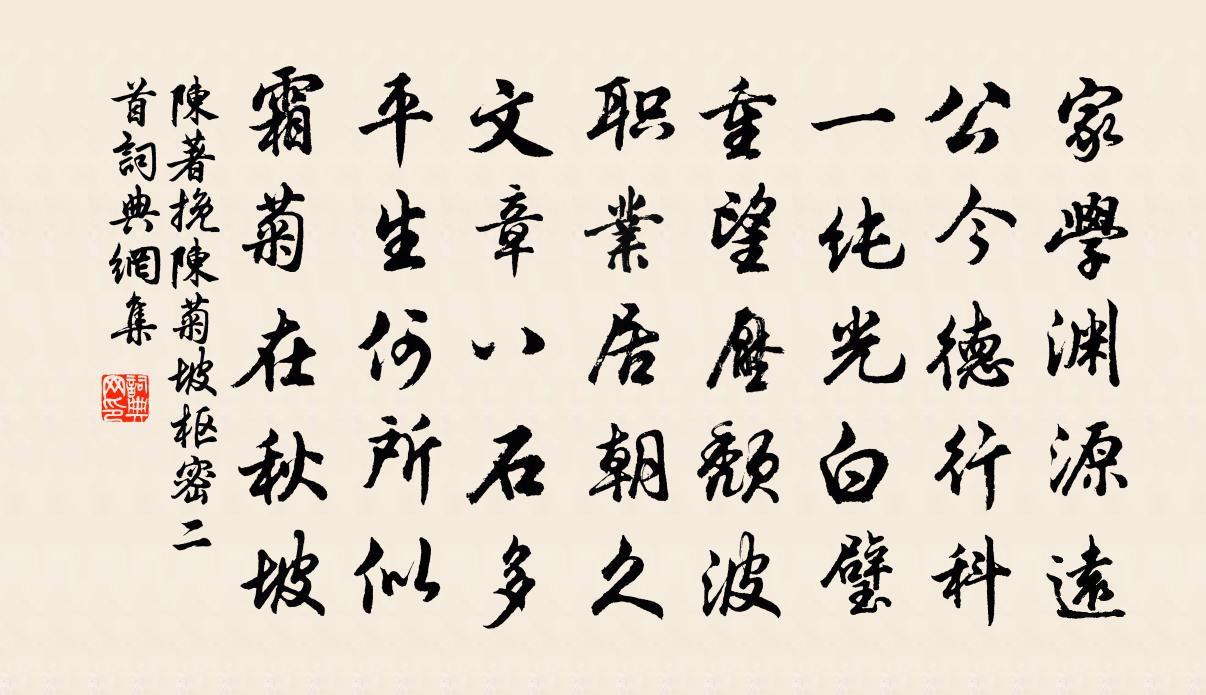 家學渊源遠
公今德行科
一纯光白璧
重望壓頽波
职業居朝久
文章八石多
平生何所似
霜菊在秋坡
陳著挽陳菊坡枢密二
首詞典網集
詞典网印